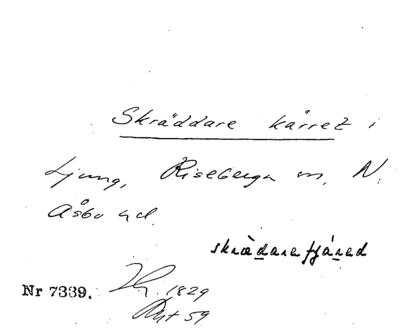 Skräddare kärret i
Ljung, Riseberga sn, N.
Åsbo hd.
skrædarefjáræd
Nr 7339. 1829
Akt 59